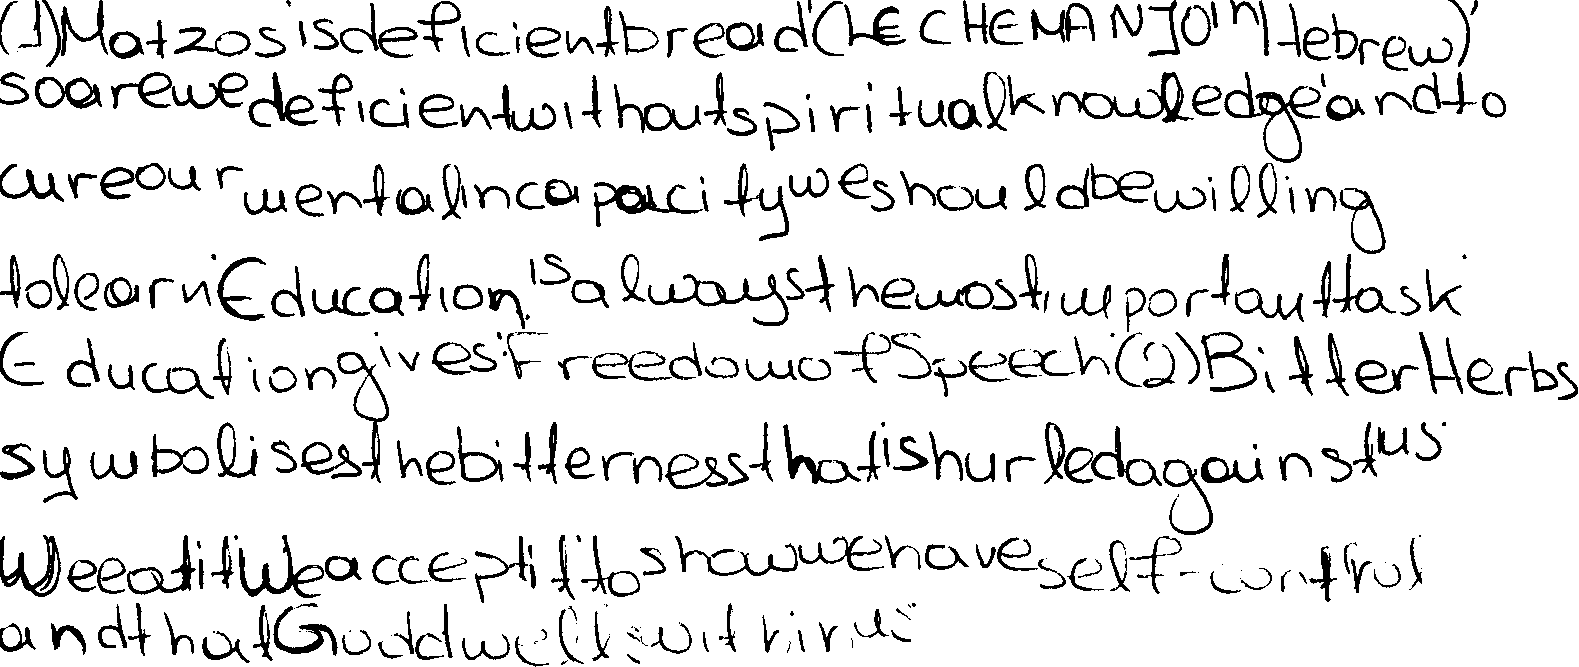 (1) Matzos is deficient bread (LECHEM ANJO in Hebrew)
so are we deficient without spiritual knowledge and to
cure our mental incapacity we should be willing
to learn Education is always the most important task
Education gives Freedom of Speech (2) Bitter Herbs
symbolises the bitterness that is hurled against us
We eat it We accept it to show we have self-control
and that God dwells within us